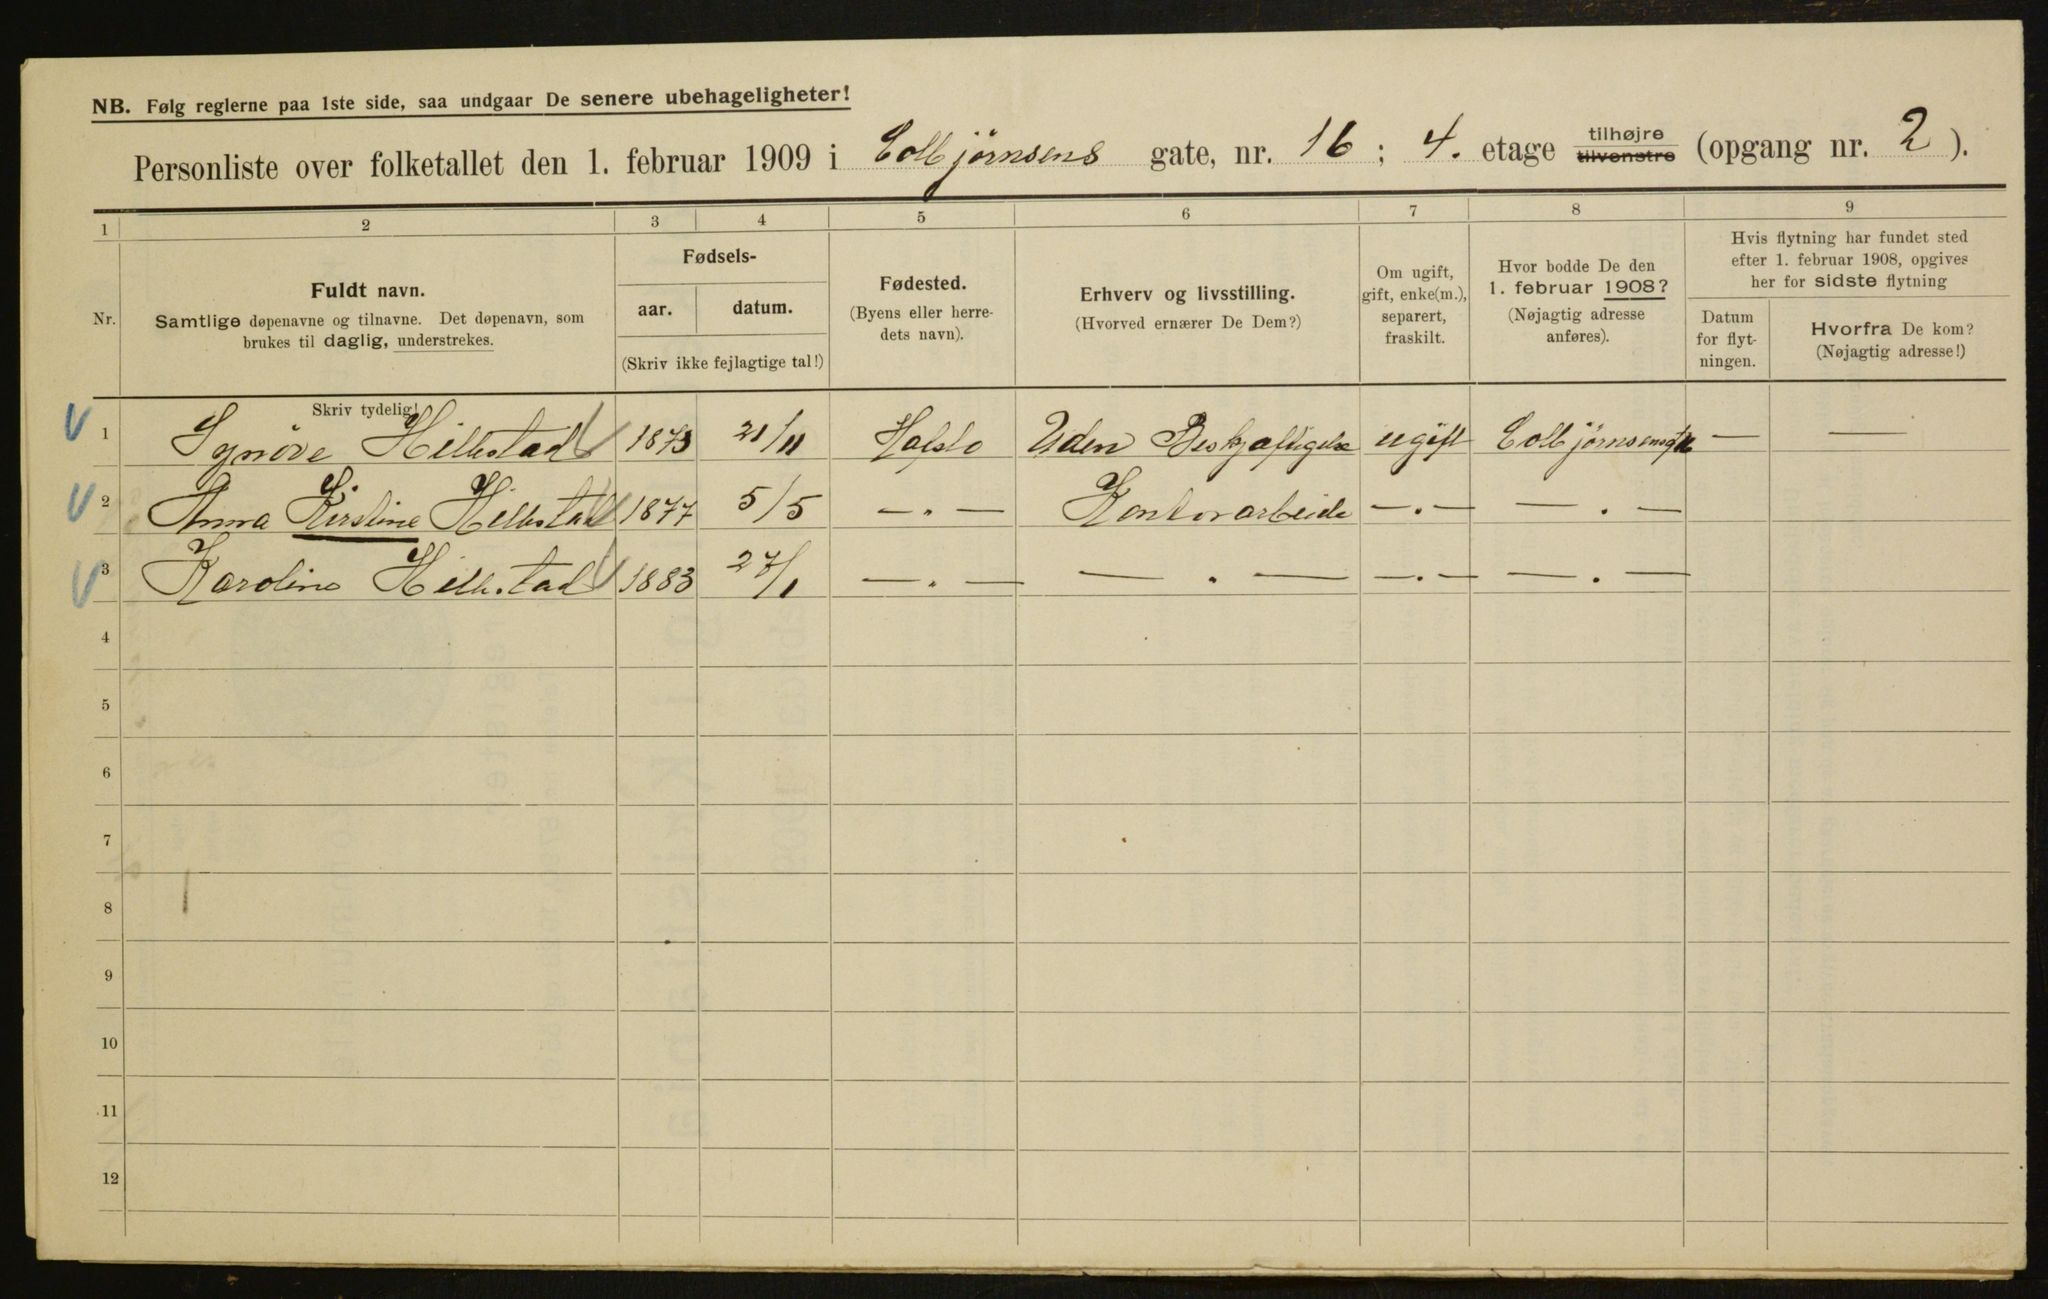 NB. Følg reglerne paa 1ste side, saa undgaar De senere ubehageligheter!
Personliste over folketallet den 1. februar 1909 i Colbjørnsens gate, nr. 16 ; 4. etage tilhøjre tilvenstre (opgang nr. 2 ).
1 2 3 4 5 6 7 8 9
Nr.
Fuldt navn.
Samtlige døpenavne og tilnavne. Det døpenavn, som
brukes til daglig, understrekes.
Fødsels-
aar. datum.
(Skriv ikke fejlagtige tal!)
Fødested.
(Byens eller herre-
dets navn).
Erhverv og livsstilling.
(Hvorved ernærer De Dem?)
Om ugift,
gift, enke(m.),
separert,
fraskilt.
Hvor bodde De den
1. februar 1908?
(Nøjagtig adresse
anføres).
Hvis flytning har fundet sted
efter 1. februar 1908, opgives
her for sidste flytning
Datum
for flyt-
ningen.
Hvorfra De kom?
(Nøjagtig adresse!)
Skriv tydelig!
1 Synøve Hillestad 1873 21/11 Hafslo Uden Beskjæftigelse ugift Colbjørnsensgt — —
2 Anna Kirstine Hillestad 1877 5/5 — " — Kontorarbeide — " — — " —
3 Karoline Hillestad 1883 27/1 — " — — " — — " — — " —
4
5
6
7
8
9
10
11
12